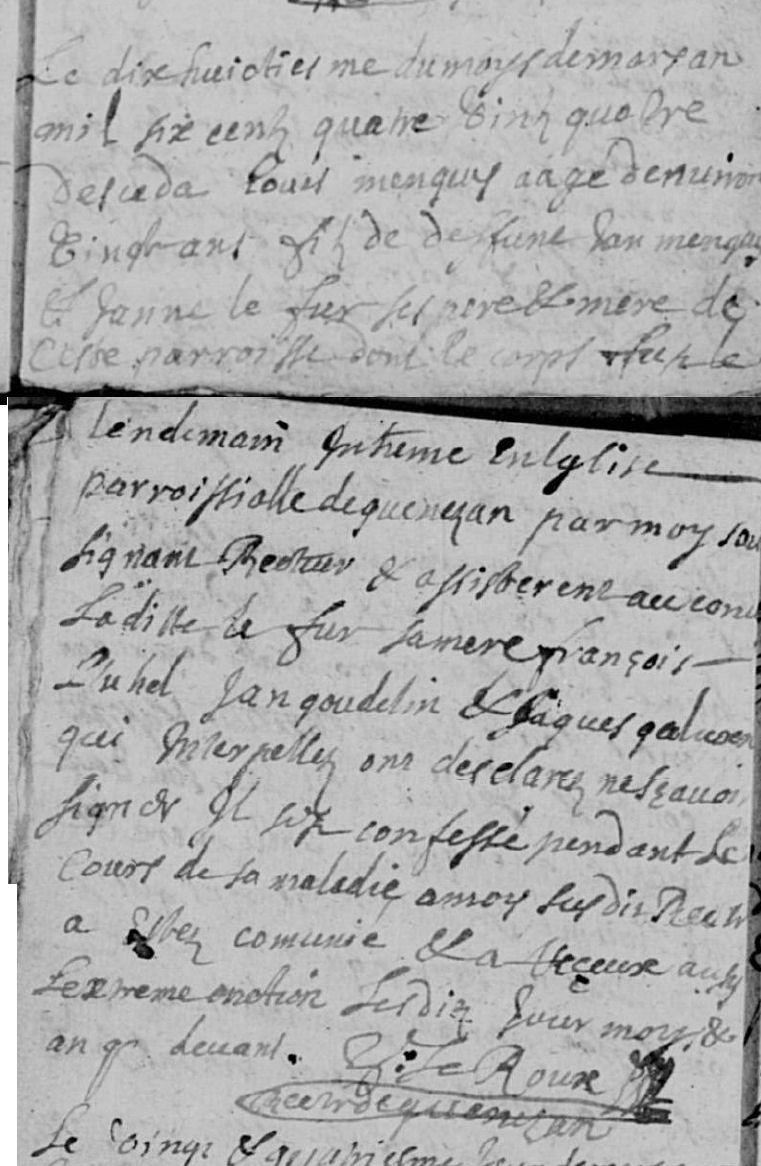 Le dixhuicties me du moys de mars an
mil six centz quatre vinz quatre
desceda Louis menguy aage denuiron
vingt ans filz de deffunt Jan menguy
& Janne le fur ses pere & mere de
Ceste parroisse dont le corps fut le
lendemain Inhume En leglise
parroissialle de quenezan par moy sou
signant Recteur & assisterent au conu
Laditte le fur sa mere françois
Jan goudelin & Jaques
qui Interpellez ont desclarez ne sçauoir
signer Il sest confesse pendant Le
Cours de sa maladie a moy susdit Rectr
a Estez comunie & a Receux aussy
Lextreme onction Lesditz Jour moys &
an q devant. Le Roux
Rectr de quenezan
Le vingt & quatriesme Jour